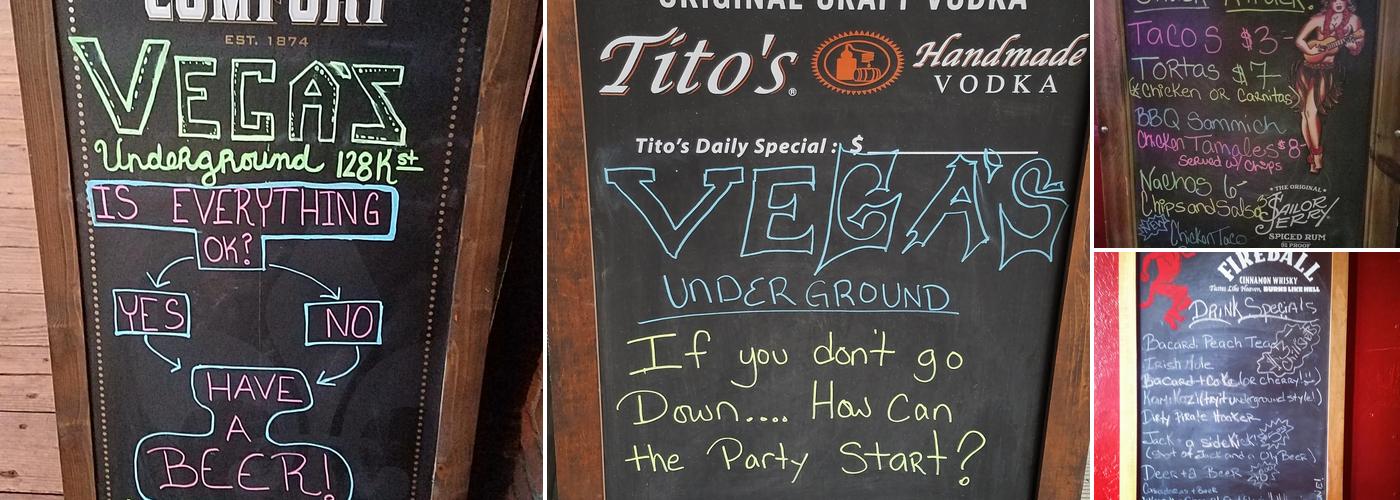 COMFORT
EST. 1874
VEGA'S
Underground 128K st
IS EVERYTHING
OK?
YES
NO
HAVE
A
BEER!
ORIGINAL CRAFT VODKA
Tito's ® Handmade
VODKA
Tito's Daily Special : $
VEGA'S
UNDERGROUND
If you don't go
Down.... How Can
the Party Start?
Tacos $3-
Tortas $7-
(*Chicken OR Carnitas)
BBQ Sammich
Chicken Tamales $8-
Served w/ Chips
Nachos 6-
Chips and Salsa
Chicken Taco
• THE ORIGINAL •
SAILOR
JERRY
SPICED RUM
92 PROOF
FIREBALL
CINNAMON WHISKY
Tastes Like Heaven, BURNS LIKE HELL
DRINK Specials
Bacardi Peach Tea
Irish Mule
Bacard + Coke (or cherry!)
Kamikazi (try it underground style!)
Dirty Pirate Hooker
Jack - a sideKick!
(Shot of Jack and a Oly Beer)
Deer + a Beer